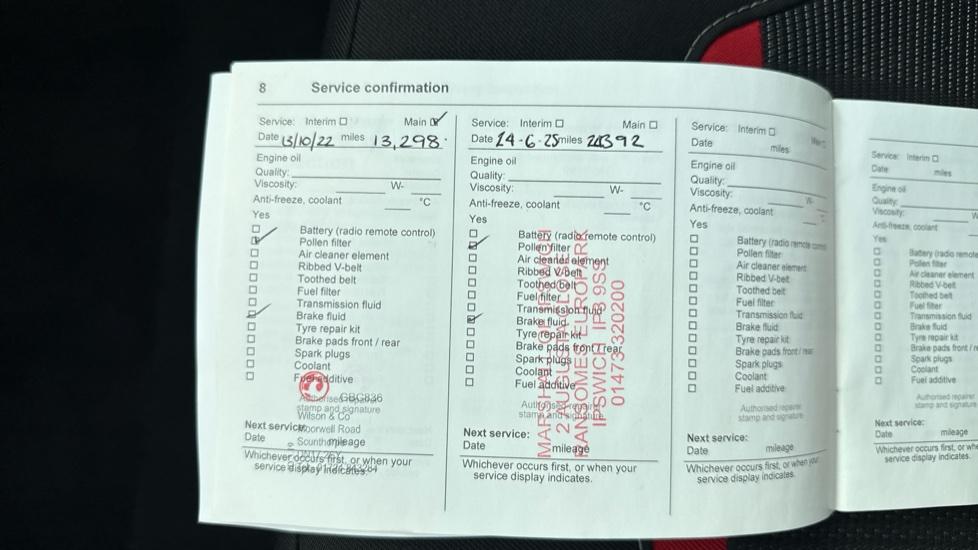 8 Service confirmation
Service: Interim Main
Date 13/10/22 miles 13,298.
Engine oil
Quality:
Viscosity: W-
Anti-freeze, coolant °C
Yes
Battery (radio remote control)
Pollen filter
Air cleaner element
Ribbed V-belt
Toothed belt
Fuel filter
Transmission fluid
Brake fluid
Tyre repair kit
Brake pads front / rear
Spark plugs
Coolant
Fuel additive
Authorised repairer GBG836
stamp and signature
Wilson & Co
Next service: Moorwell Road
Date Scunthorpe mileage
Whichever occurs first, or when your
service display indicates.
Service: Interim Main
Date 14-6-25 miles
Engine oil
Quality:
Viscosity: W-
Anti-freeze, coolant °C
Yes
Battery (radio remote control)
Pollen filter
Air cleaner element
Ribbed V-belt
Toothed belt
Fuel filter
Transmission fluid
Brake fluid
Tyre repair kit
Brake pads front / rear
Spark plugs
Coolant
Fuel additive
Authorised repairer
stamp and signature
IPSWICH IP3 9SS
01473 320200
Next service:
Date mileage
Whichever occurs first, or when your
service display indicates.
Service: Interim
Date miles
Engine oil
Quality:
Viscosity: W-
Anti-freeze, coolant °C
Yes
Battery (radio remote control)
Pollen filter
Air cleaner element
Ribbed V-belt
Toothed belt
Fuel filter
Transmission fluid
Brake fluid
Tyre repair kit
Brake pads front / rear
Spark plugs
Coolant
Fuel additive
Authorised repairer
stamp and signature
Next service:
Date mileage
Whichever occurs first, or when your
service display indicates.
Service: Interim
Date miles
Engine oil
Quality:
Viscosity: W
Anti-freeze, coolant
Yes
Battery (radio remote
Pollen filter
Air cleaner element
Ribbed V-belt
Toothed belt
Fuel filter
Transmission fluid
Brake fluid
Tyre repair kit
Brake pads front / r
Spark plugs
Coolant
Fuel additive
Authorised repairer
stamp and signature
Next service:
Date mileage
Whichever occurs first, or wh
service display indicates.